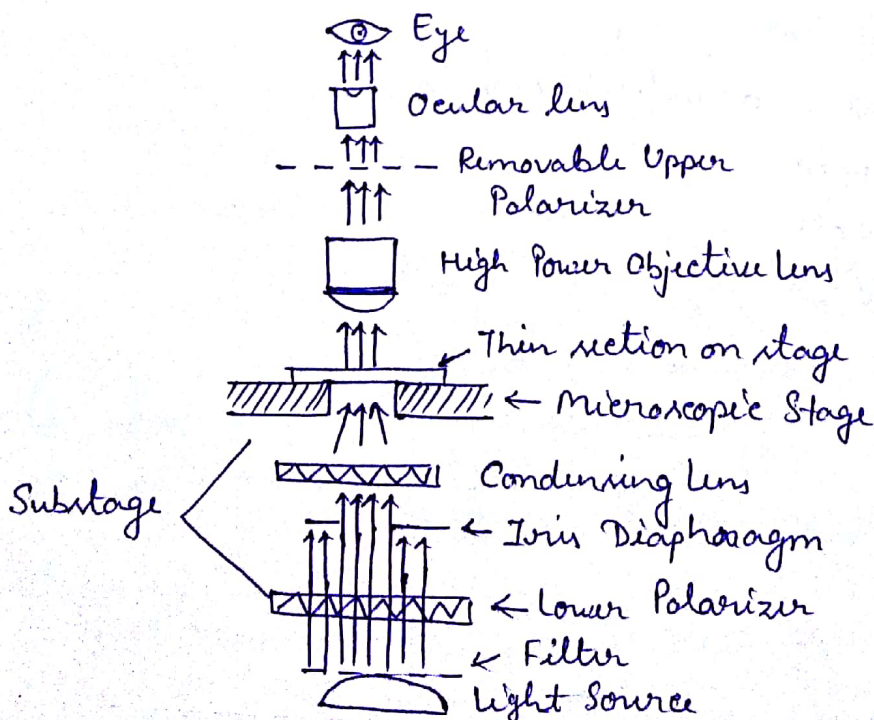 Eye
Ocular lens
Removable Upper
Polarizer
High Power Objective Lens
Thin section on stage
Microscopic Stage
Condensing Lens
Substage
Iris Diaphragm
Lower Polarizer
Filter
Light Source